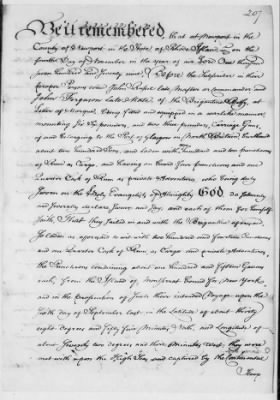 207
Be it remembered that at Newport in the
County of Newport in the State of Rhode Island on the
fourth Day of November in the year of our Lord One thousand
seven hundred and Seventy seven Before the Subscriber in their
proper Persons came John late Master or Commander and
John Ferguson late Mate of the Brigantine Betsy, at
being fitted and equipped in a warlike manner
mounting Six and two three pounders, Carriage Guns,
of and belonging to the Port of Glasgow in North Britain, Burthen
about two hundred Tons, and laden with hundred and ten Puncheons
of Rum as Cargo, and having on board four Puncheons and one
Quarter Cask of Rum as private Adventures, who being duly
Sworn on the Holy Evangelists of Almighty GOD do solemnly
and sincerely declare swear and say, and each of them for himself
saith, That they Sailed in and with the Brigantine aforesaid,
so laden as aforesaid to wit with two hundred and fourteen Puncheons
and one Quarter Cask of Rum as Cargo and private Adventures,
the Puncheons containing about one hundred and fifteen Gallons
each, from the Island of Montserrat bound for New York
and in the Prosecution of such their intended Voyage upon the
Sixth day of September last, in the Latitude of about thirty
eight degrees and fifty five Minutes, North, and Longitude of
about Seventy two degrees and three Minutes West, they were
met with upon the High Seas, and captured by the Continental